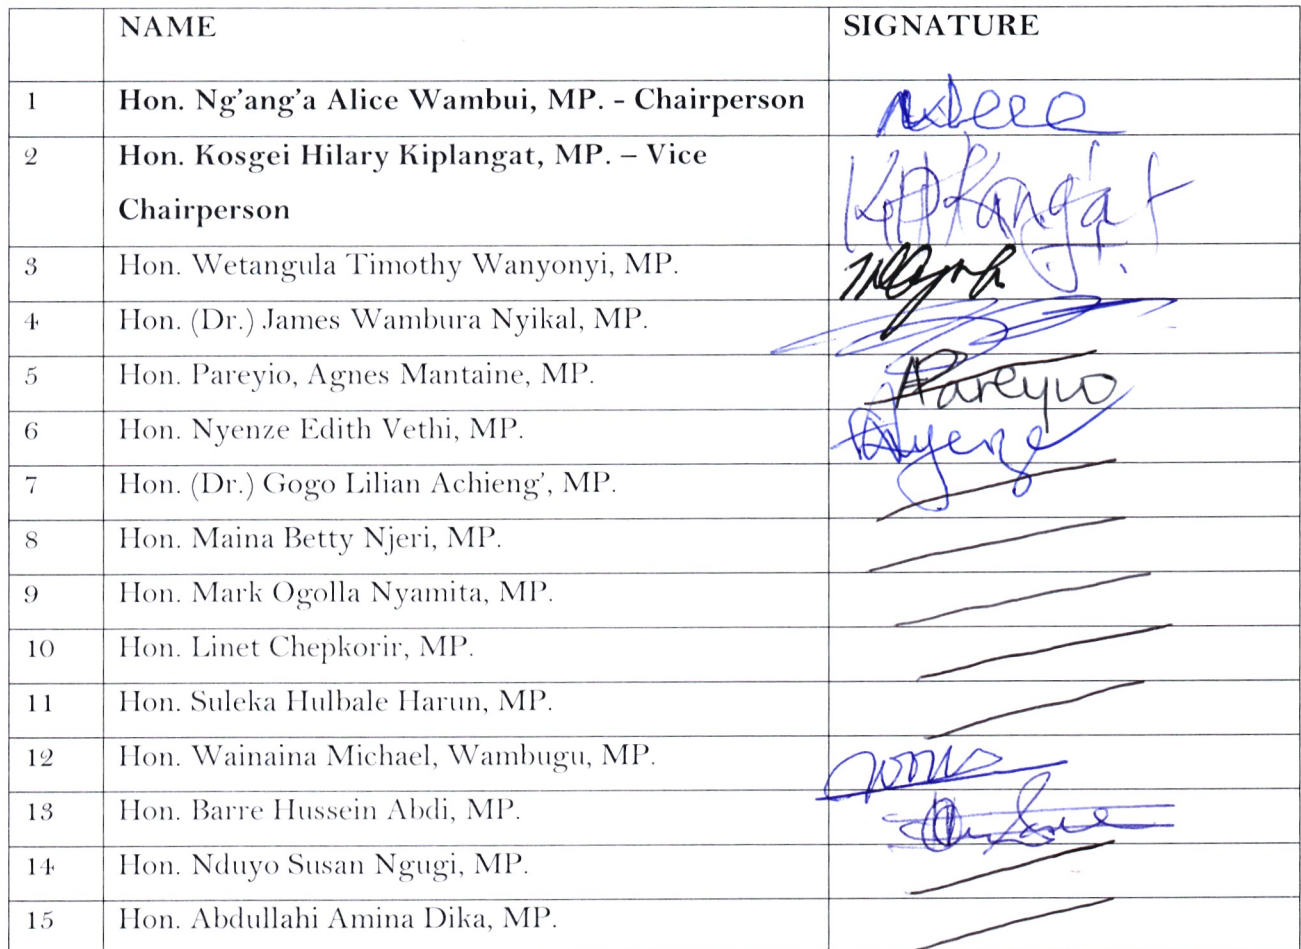 NAME SIGNATURE
1 Hon. Ng'ang'a Alice Wambui, MP. - Chairperson
2 Hon. Kosgei Hilary Kiplangat, MP. – Vice
Chairperson
3 Hon. Wetangula Timothy Wanyonyi, MP.
4 Hon. (Dr.) James Wambura Nyikal, MP.
5 Hon. Pareyio, Agnes Mantaine, MP. Pareyio
6 Hon. Nyenze Edith Vethi, MP.
7 Hon. (Dr.) Gogo Lilian Achieng', MP.
8 Hon. Maina Betty Njeri, MP.
9 Hon. Mark Ogolla Nyamita, MP.
10 Hon. Linet Chepkorir, MP.
11 Hon. Suleka Hulbale Harun, MP.
12 Hon. Wainaina Michael, Wambugu, MP.
13 Hon. Barre Hussein Abdi, MP.
14 Hon. Nduyo Susan Ngugi, MP.
15 Hon. Abdullahi Amina Dika, MP.